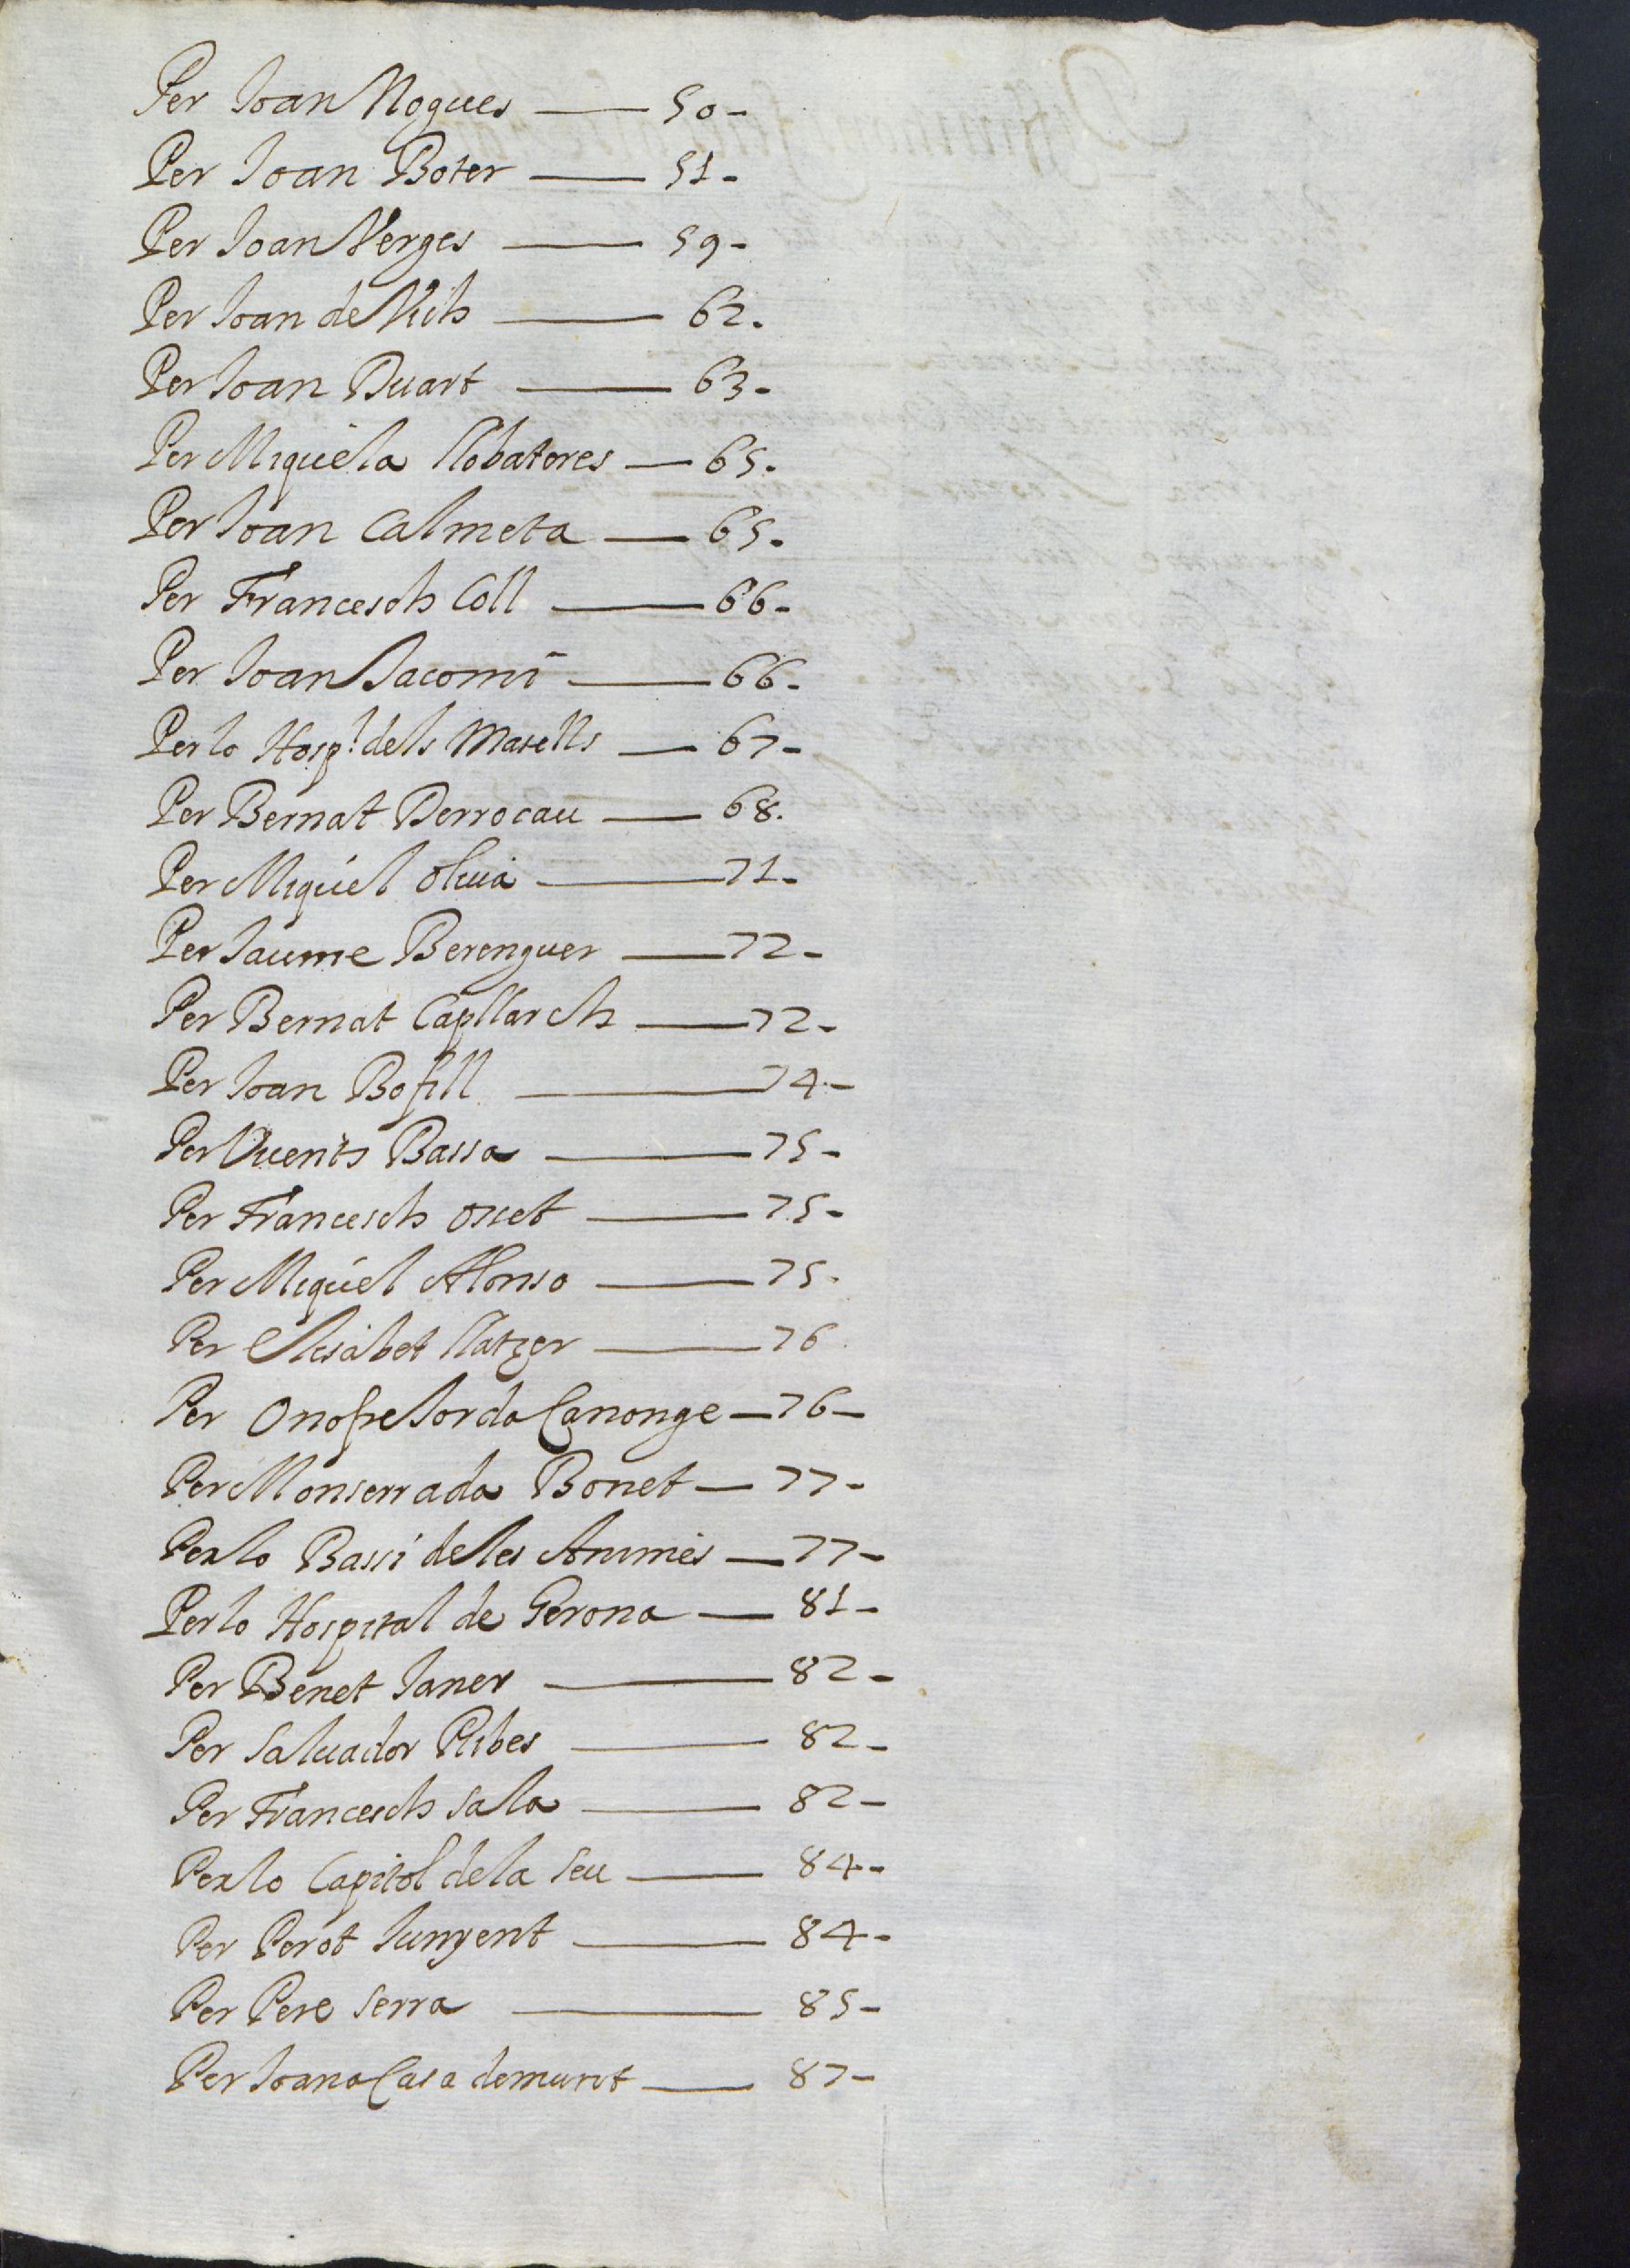 Per Ioan Nogues — 50-
Per Ioan Boter — 51-
Per Ioan Verges — 59-
Per Ioan de Vich — 62.
Per Ioan Duart — 63-
Per Miquela llobateres — 65.
Per Ioan Calmeta — 65.
Per Francesch Coll — 66-
Per Ioan Jacomi — 66-
Per lo Hosp.l dels Masells — 67-
Per Bernat Derrocau — 68.
Per Miquel oliua — 71-
Per Iaume Berenguer — 72-
Per Bernat Capllarch — 72-
Per Ioan Bofill — 74-
Per Vicents Bassa — 75-
Per Francesch osset — 75-
Per Miquel Alonso — 75-
Per Elisabet llatzer — 76
Per Onofre Iorda Canonge — 76-
Per Monserrada Bonet — 77-
Per lo Bassi de les Animes — 77-
Per lo Hospital de Gerona — 81-
Per Benet Ianer — 82-
Per Saluador Ribes — 82-
Per Francesch Sala — 82-
Per lo Capitol de la Seu — 84-
Per Perot Iunyent — 84-
Per Pere Serra — 85-
Per Ioana Casademunt — 87-